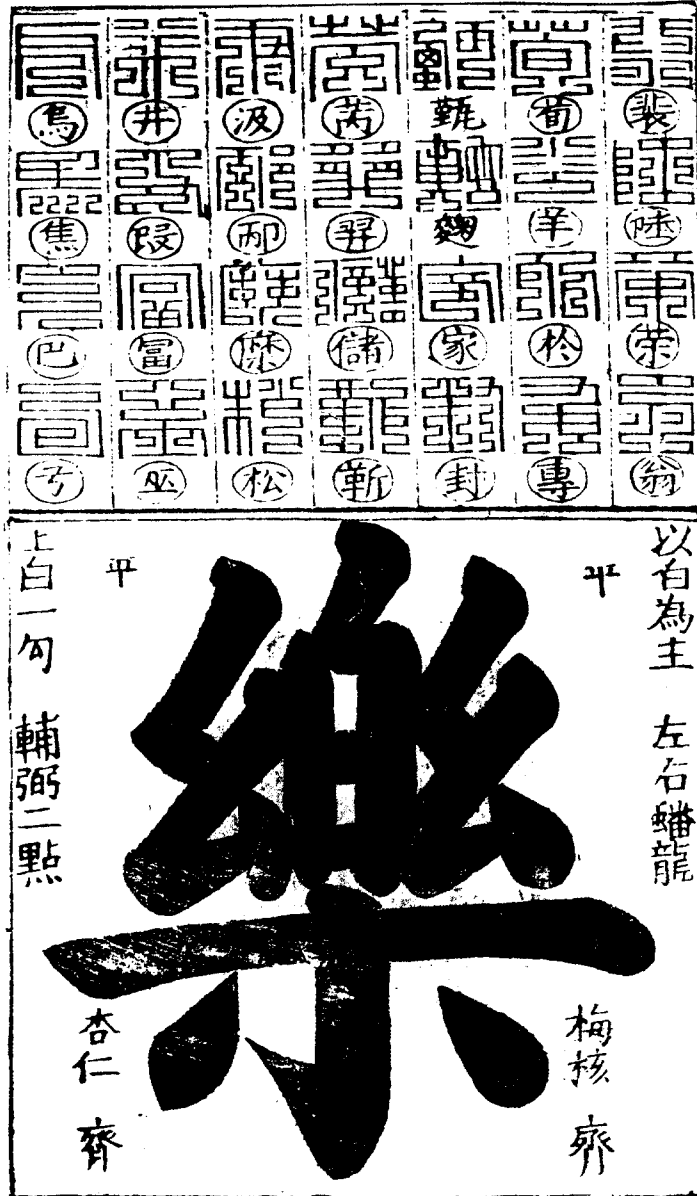 裴陸荣翁
荀羊於專
甄麹家封
芮羿儲靳
汲邴糜松
井段富巫
烏焦巴弓
以白為主 左右蟠龍
平
梅核 齊
樂
平
杏仁 齊
上白一勾 輔弼二點